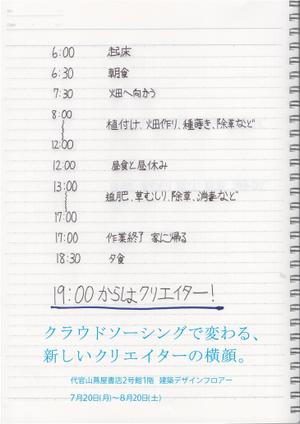 6:00 起床
6:30 朝食
7:30 畑へ向かう
8:00
植付け、畑作り、種蒔き、除草など
12:00
12:00 昼食と昼休み
13:00
追肥、草むしり、除草、消毒など
17:00
17:00 作業終了 家に帰る
18:30 夕食
19:00からはクリエイター!
クラウドソーシングで変わる、
新しいクリエイターの横顔。
代官山蔦屋書店2号館1階 建築デザインフロアー
7月20日(月)〜8月20日(土)